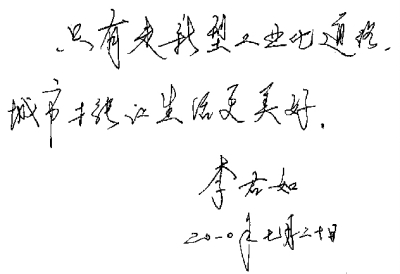 只有走新型工业化道路，
城市才能让生活更美好。
李君如
二〇一〇年七月二十日